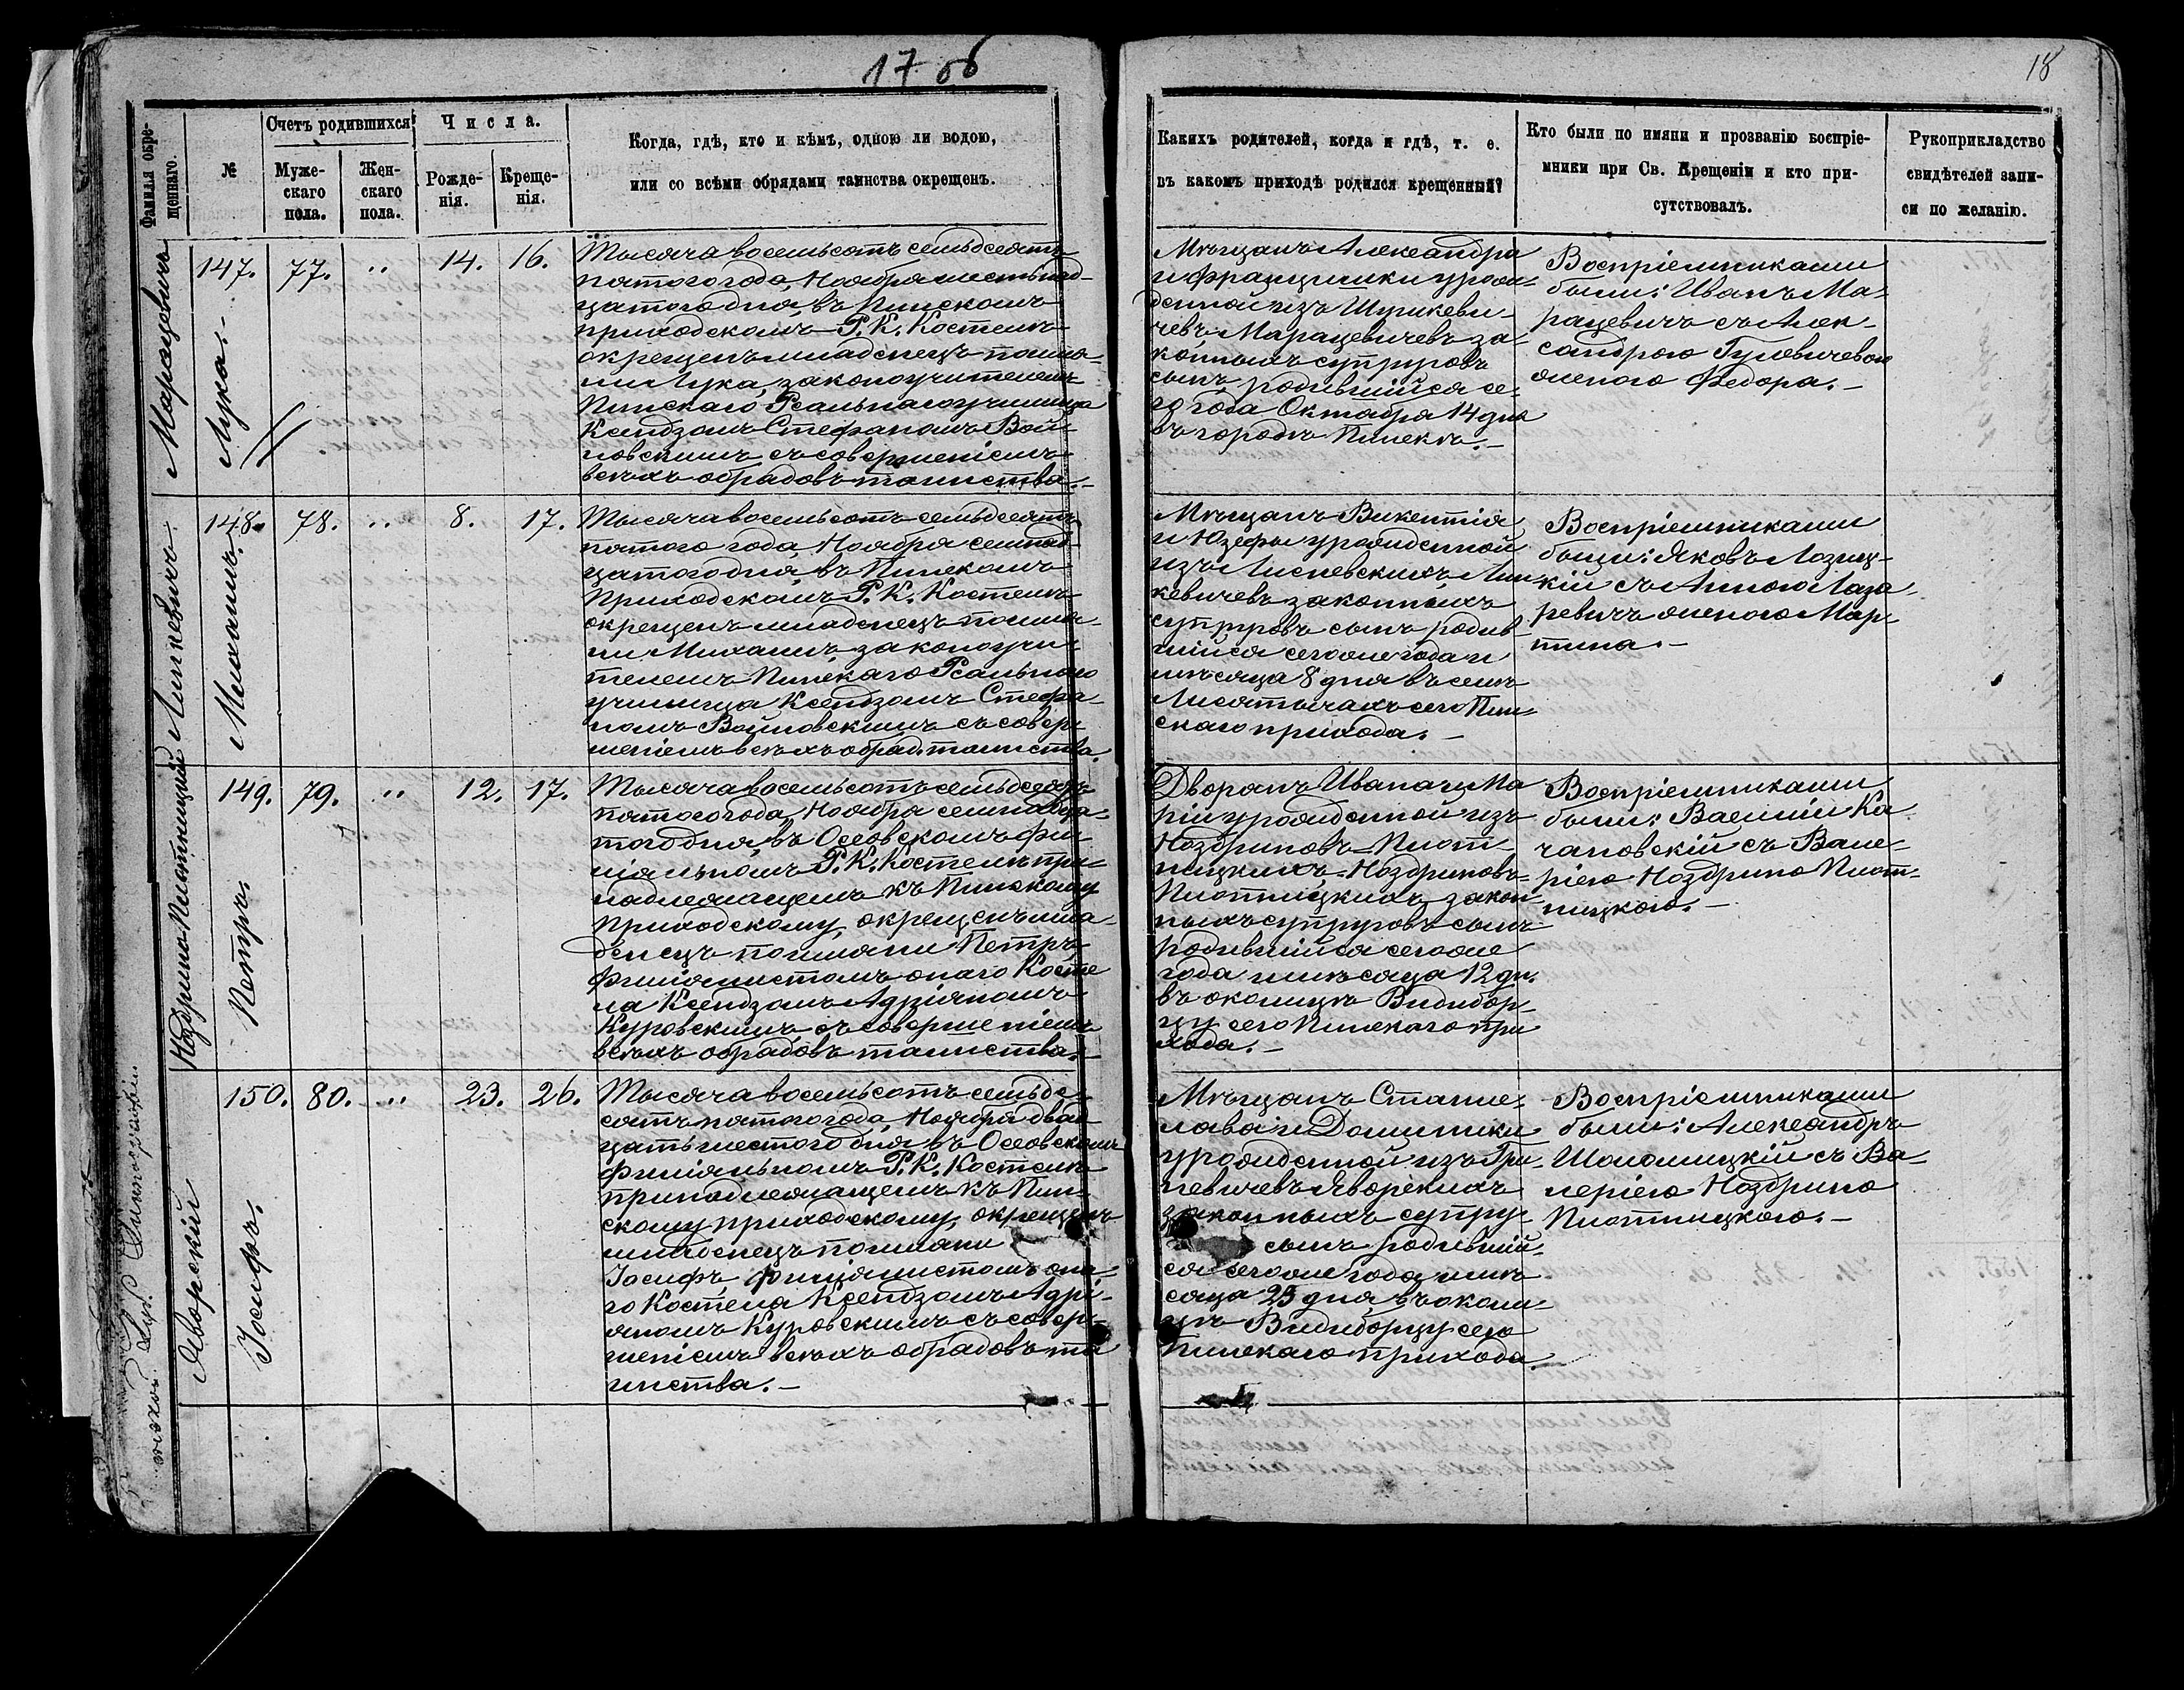 17 об
18
Фамилія окре-
щеннаго.
№
Счетъ родившихся
Муже-
скаго
пола.
Жен-
скаго
пола.
Числа.
Рожде-
нія.
Креще-
нія.
Когда, гдѣ, кто и кѣмъ, одною ли водою,
или со всѣми обрядами таинства окрещенъ.
Какихъ родителей, когда и гдѣ, т. е.
въ какомъ приходѣ родился крещенный?
Кто были по имяни и прозванію воспріе-
мники при Св. Крещеніи и кто при-
сутствовалъ.
Рукоприкладство
свидѣтелей запи-
си по желанію.
Марацевичъ
Лука.
147. 77. " 14. 16.
Тысяча восемьсотъ семьдесятъ
пятого года, Ноября шестьнад-
цатого дня, въ Пинскомъ
приходскомъ Р. К. Костелѣ
окрещенъ младенецъ по имя-
ни Лука, законоучителемъ
Пинскаго Реальнаго училища
Ксендзомъ Стефаномъ Вой-
ловскимъ съ совершеніемъ
всѣхъ обрядовъ таинства.
Мѣщанъ Александра
и Францишки урож-
денной изъ Шушкеви-
чевъ Марацевичевъ за-
конныхъ супруговъ
сынъ родившійся се-
го года Октября 14 дня
въ городѣ Пинскѣ.
Воспріемниками
были: Иванъ Ма-
рацевичъ съ Алек-
сандрою Гулевичевою
женою Федора.
Линкевичъ
Михаилъ.
148. 78. " 8. 17.
Тысяча восемьсотъ семьдесятъ
пятого года, Ноября семнад-
цатого дня, въ Пинскомъ
Приходскомъ Р. К. Костелѣ
окрещенъ младенецъ по имя-
ни Михаилъ законоучи-
телемъ Пинскаго Реальнаго
училища Ксендзомъ Стефа-
номъ Войловскимъ съ совер-
шеніемъ всѣхъ обряд. таинства.
Мѣщанъ Викентія
и Юзефы урожденной
изъ Лисневскихъ Лин-
кевичевъ законныхъ
супруговъ сынъ родив-
шійся сегоже года и
мѣсяца 8 дня въ селѣ
Лисятичахъ сего Пин-
скаго прихода.
Воспріемниками
были: Яковъ Лозиц-
кій съ Анною Лаза-
ревичъ женою Мар-
тина.
Ноздрина-Пиотницкий
Петръ.
149. 79. " 12. 17.
Тысяча восемьсотъ семьдесятъ
пятого года, Ноября семнадца-
того дня, въ Осовскомъ фи-
ліяльномъ Р. К. Костелѣ при-
надлежащемъ къ Пинскому
Приходскому, окрещенъ мла-
денецъ по имяни Петръ,
филіялистомъ онаго Косте
ла Ксендзомъ Адріяномъ
Куровскимъ съ совершеніемъ
всѣхъ обрядовъ таинства.
Дворянъ Ивана и Ма
ріи урожденной изъ
Ноздриновъ-Пиот-
ницкихъ, Ноздриновъ-
Пиотницкихъ закон-
ныхъ супруговъ сынъ
родившійся сегоже
года и мѣсяца 12 дн.
въ околицѣ Видибор-
цу сего Пинскаго при
хода.
Воспріемниками
были: Василій Ка-
чановскій съ Вале-
ріею Ноздрино Пиот-
ницкою.
Яворскій
Іосифъ.
150. 80. " 23. 26.
Тысяча восемьсотъ семьде-
сятъ пятого года, Ноября двад-
цать шестого дня въ Осовскомъ
филіяльномъ Р. К. Костелѣ
принадлежащемъ къ Пин-
скому приходскому, окрещенъ
младенецъ по имяни
Іосифъ, филіялистомъ она-
го Костела Ксендзомъ Адрі-
яномъ Куровскимъ съ совер-
шеніемъ всѣхъ обрядовъ та
инства.
Мѣщанъ Станис-
лава и Доминики
урожденной изъ Гри-
невичевъ Яворскихъ
законныхъ супру-
сынъ родивший-
ся сегоже года и мѣ
сяца 23 дня въ околи-
цѣ Видиборцу сего
Пинскаго прихода.
Воспріемниками
были: Александръ
Шоломицкій съ Ва-
леріею Ноздрино
Пиотницкою.